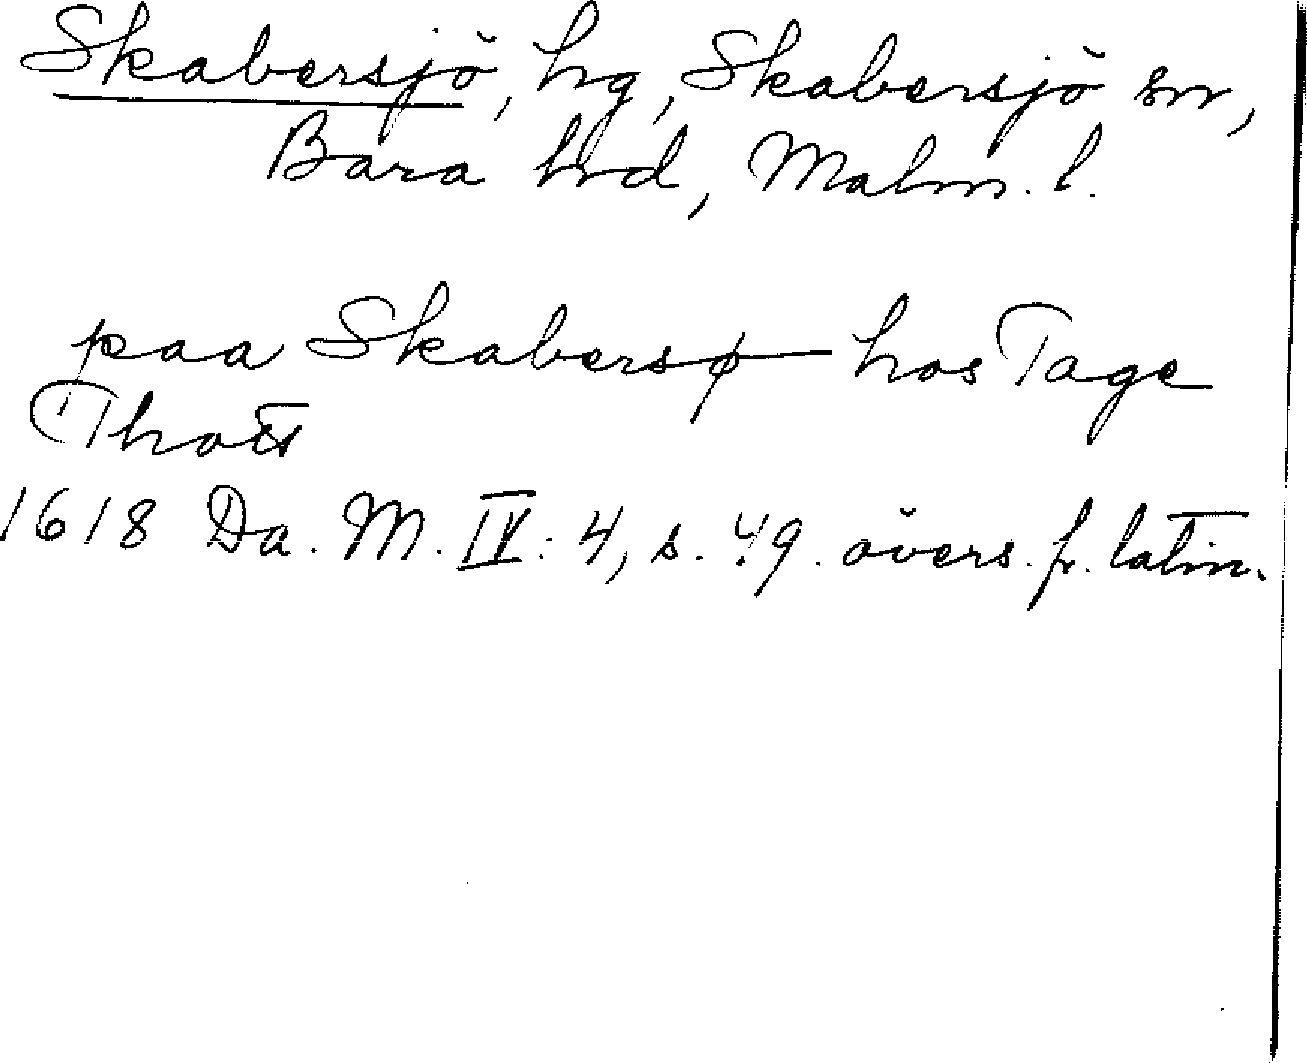 Skabersjö, hg, Skabersjö sn,
Bara hrd, Malm. l.
paa Skabersø hos Tage
Thott
1618 Da. M. IV: 4, s. 49. övers. fr. latin.